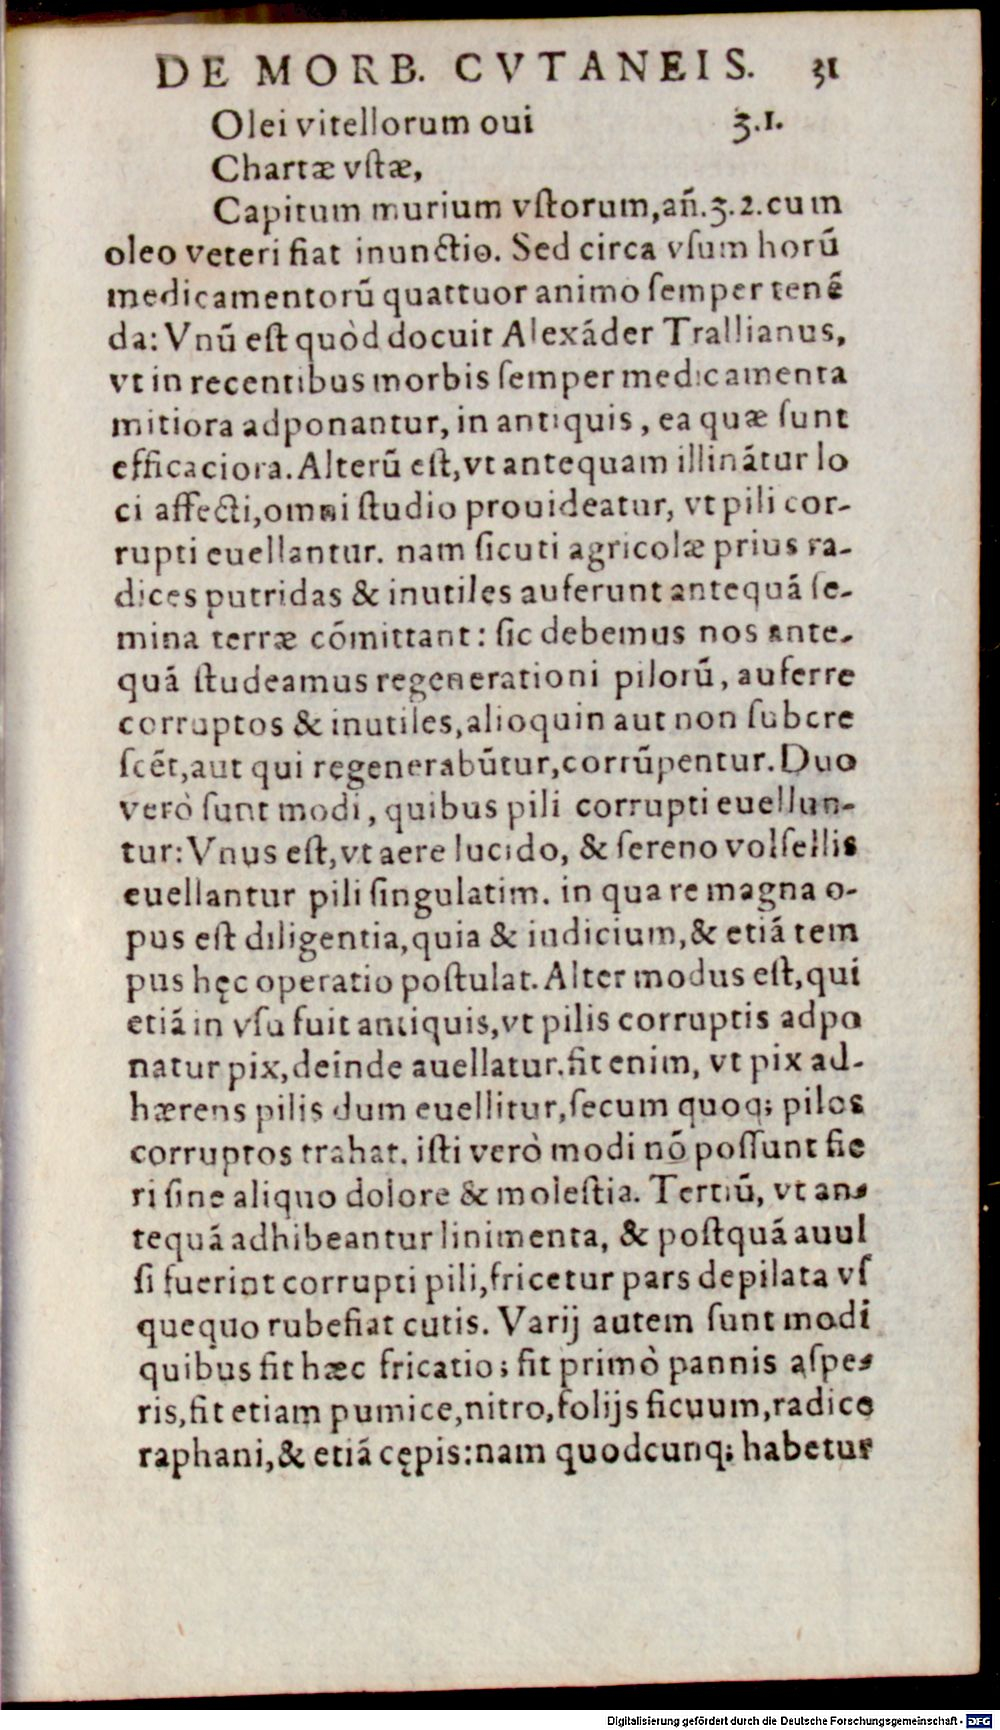 DE MORB. CVTANEIS. 31
Olei vitellorum oui ʒ.1.
Chartæ vſtæ,
Capitum murium vſtorum,añ.ʒ.2.cum
oleo veteri fiat inunctio. Sed circa vſum horũ
medicamentorũ quattuor animo ſemper tenẽ
da: Vnũ eſt quòd docuit Alexãder Trallianus,
vt in recentibus morbis ſemper medicamenta
mitiora adponantur, in antiquis, ea quæ ſunt
efficaciora. Alterũ eſt,vt antequam illinãtur lo
ci affecti,omni ſtudio prouideatur, vt pili cor-
rupti euellantur. nam ſicuti agricolæ prius ra-
dices putridas & inutiles auferunt antequã ſe-
mina terræ cõmittant: ſic debemus nos ante-
quã ſtudeamus regenerationi pilorũ, auferre
corruptos & inutiles,alioquin aut non ſubcre
ſcẽt,aut qui regenerabũtur,corrũpentur. Duo
verò ſunt modi, quibus pili corrupti euellun-
tur: Vnus eſt,vt aere lucido, & ſereno volſellis
euellantur pili ſingulatim. in qua re magna o-
pus eſt diligentia,quia & iudicium,& etiã tem
pus hęc operatio poſtulat. Alter modus eſt,qui
etiã in vſu fuit antiquis,vt pilis corruptis adpo
natur pix,deinde auellatur.fit enim, vt pix ad-
hærens pilis dum euellitur,ſecum quoq; pilos
corruptos trahat. iſti verò modi nõ poſſunt fie
ri ſine aliquo dolore & moleſtia. Tertiũ, vt an-
tequã adhibeantur linimenta, & poſtquã auul
ſi fuerint corrupti pili,fricetur pars depilata vſ
quequo rubefiat cutis. Varij autem ſunt modi
quibus fit hæc fricatio; fit primò pannis aſpe-
ris,fit etiam pumice,nitro,folijs ficuum,radice
raphani,& etiã cępis:nam quodcunq; habetur
Digitalisierung gefördert durch die Deutsche Forschungsgemeinschaft - DFG